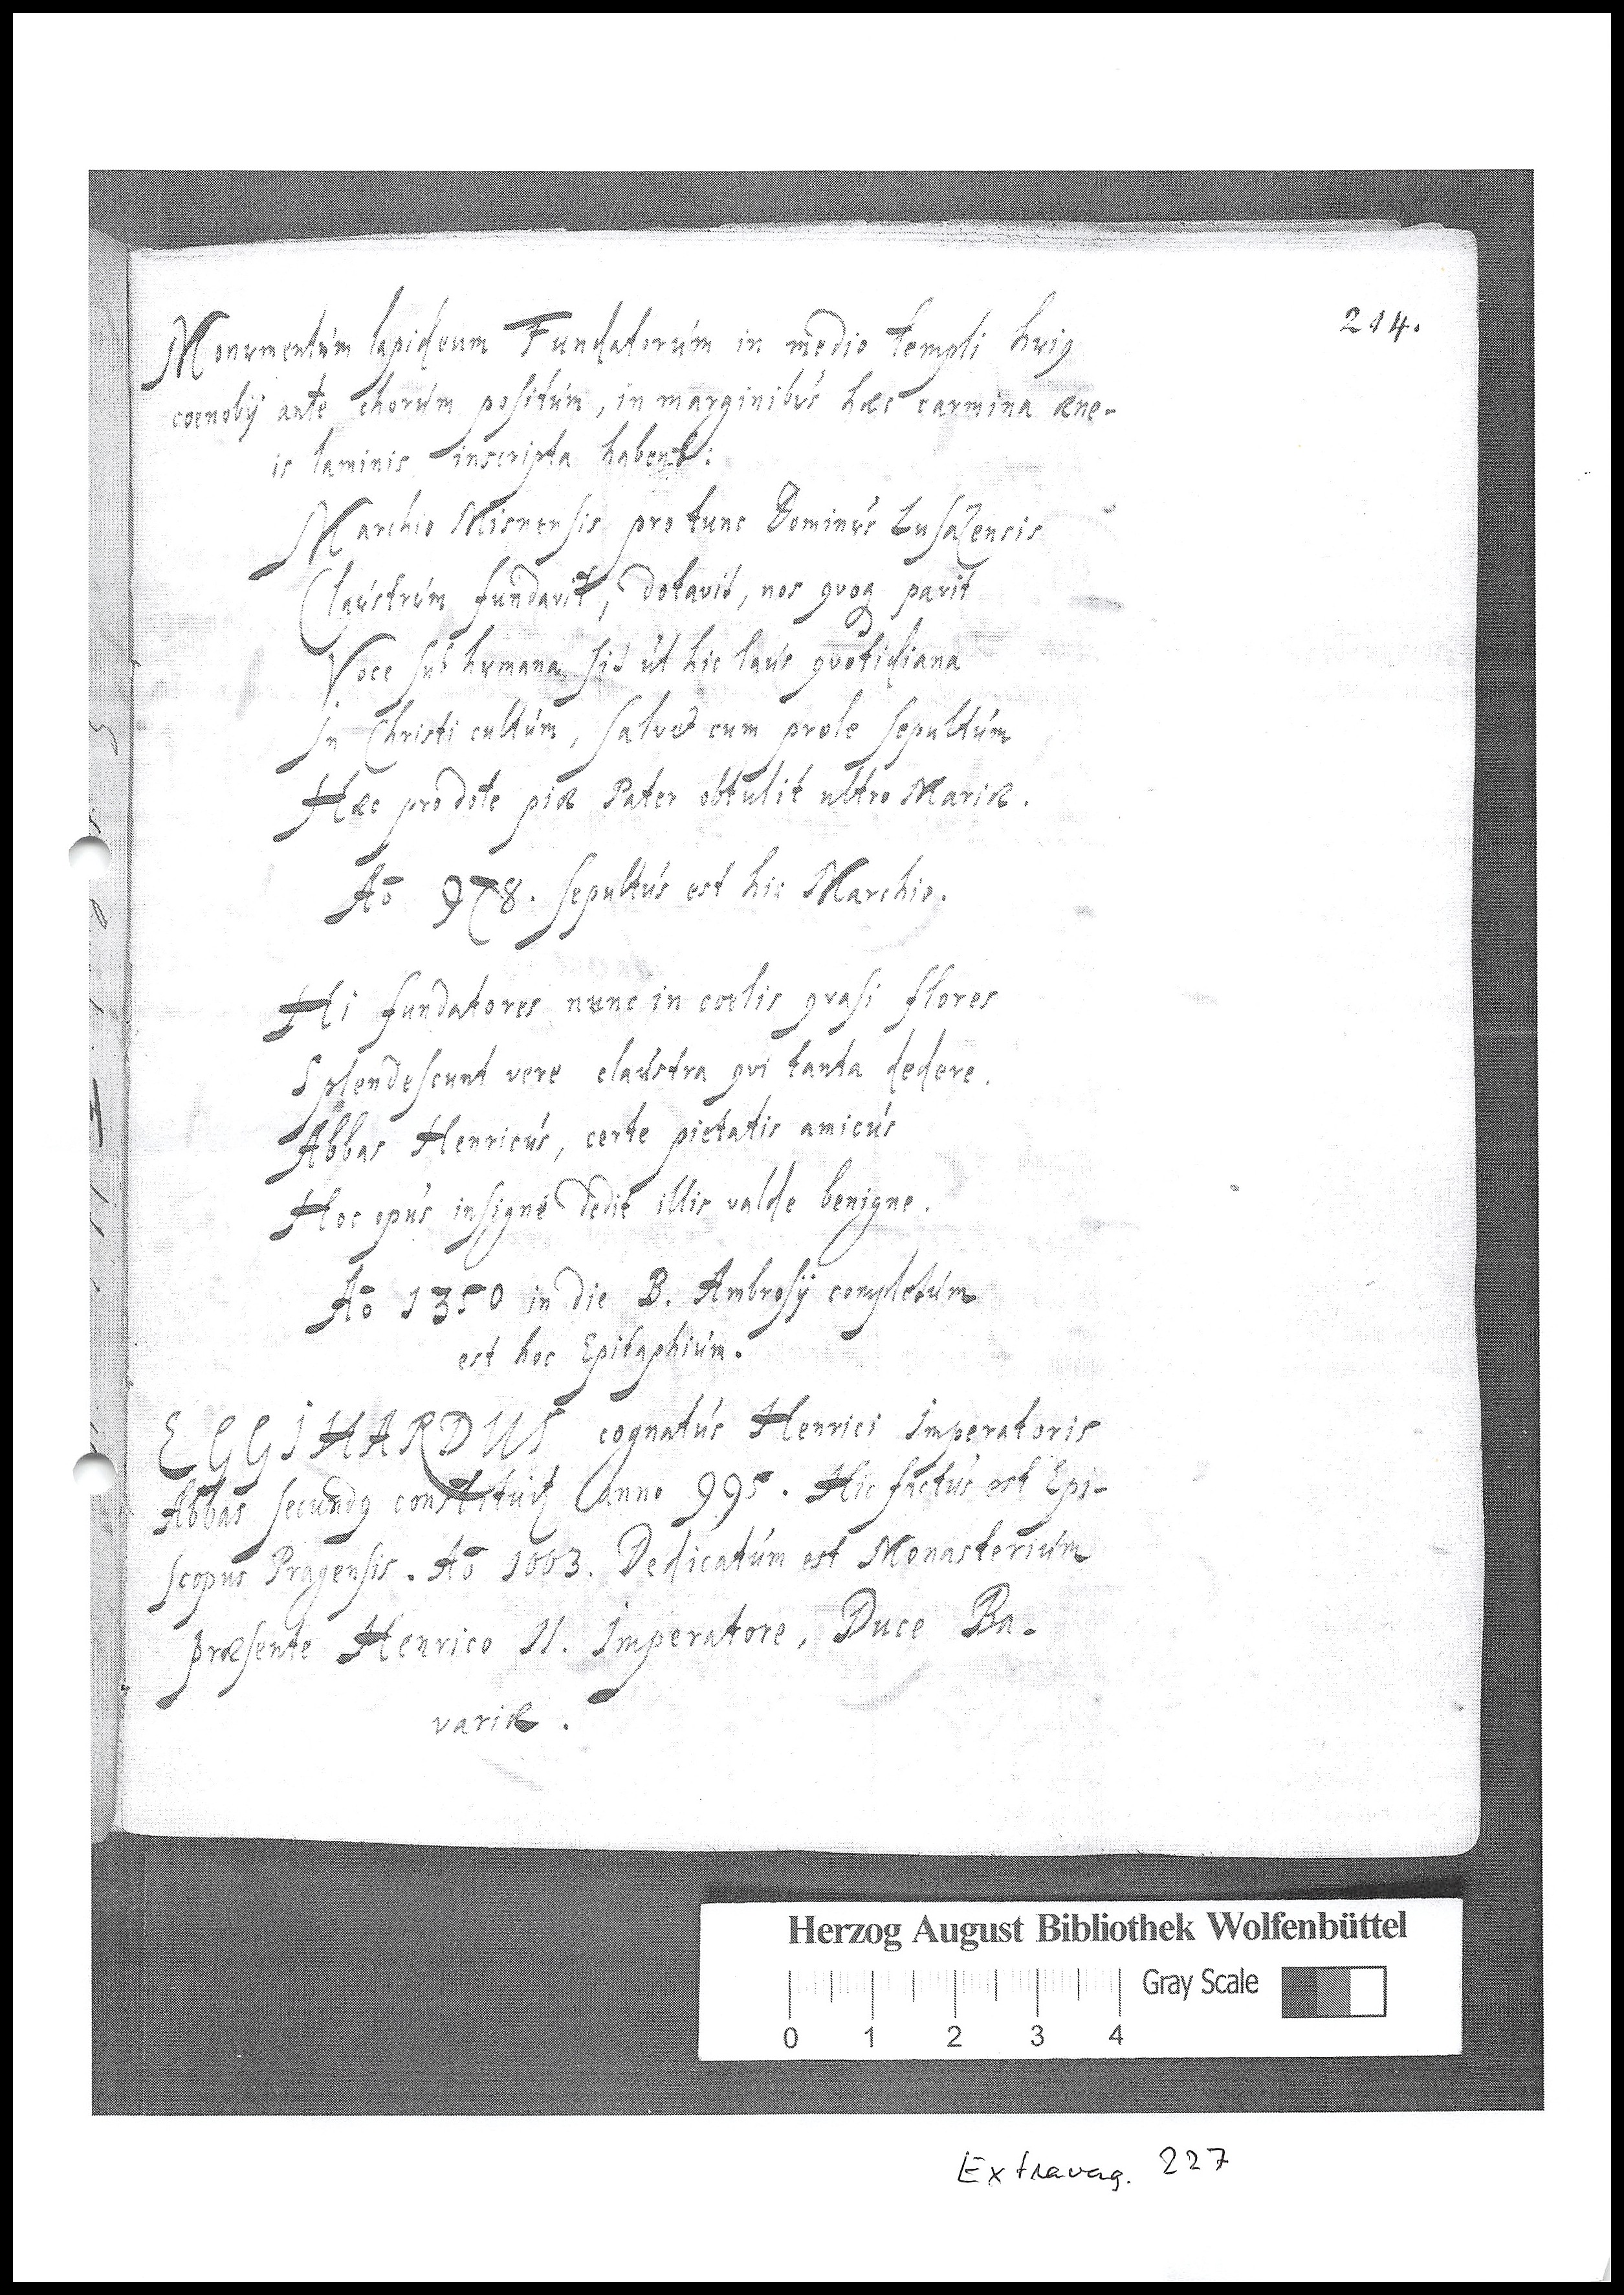 214.
Monumentúm lapideum Fundatorúm in medio templi huiꝰ
coenobÿ ante chorúm positúm, in marginibús hæc carmina æne-
is laminis inscripta habent:
Marchio Misnensis pro tunc Dominús Lusazensis
Claústrúm fundavit, dotavit, nos qvoqꝫ pavit
Voce sub humana, sit út hic laús qvotidiana
In Christi cultúm, salvet cum prole sepultúm
Hæc pro dote piæ Pater obtulit ultro Mariæ.
Aō 978. sepultús est hic Marchio.
Hi fundatores nunc in coelis qvasi flores
Splendescunt vere claústra qvi tanta dedere.
Abbas Henricús, certe pietatis amicús
Hoc opús insigne dedit illis valde benigne.
Aō 1350 in die B. Ambrosÿ completúm
est hoc Epitaphiúm.
EGGIHARDUS cognatús Henrici Imperatoris
Abbas secundꝰ constituitꝰ anno 995. Hic factús est Epi-
scopus Pragensis. Aō 1003. Dedicatúm est Monasteriúm
præsente Henrico II. Imperatore, Duce Ba-
variæ.
Herzog August Bibliothek Wolfenbüttel
Gray Scale
0 1 2 3 4
Extravag. 227